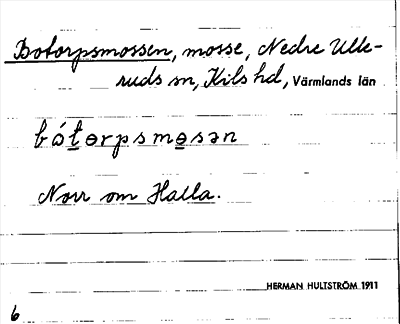 Botorpsmossen, mosse, Nedre Ulle-
ruds sn, Kils hd, Värmlands län
bót̲ɵrpsmɵ̲sən
Norr om Halla.
HERMAN HULTSTRÖM 1911
6